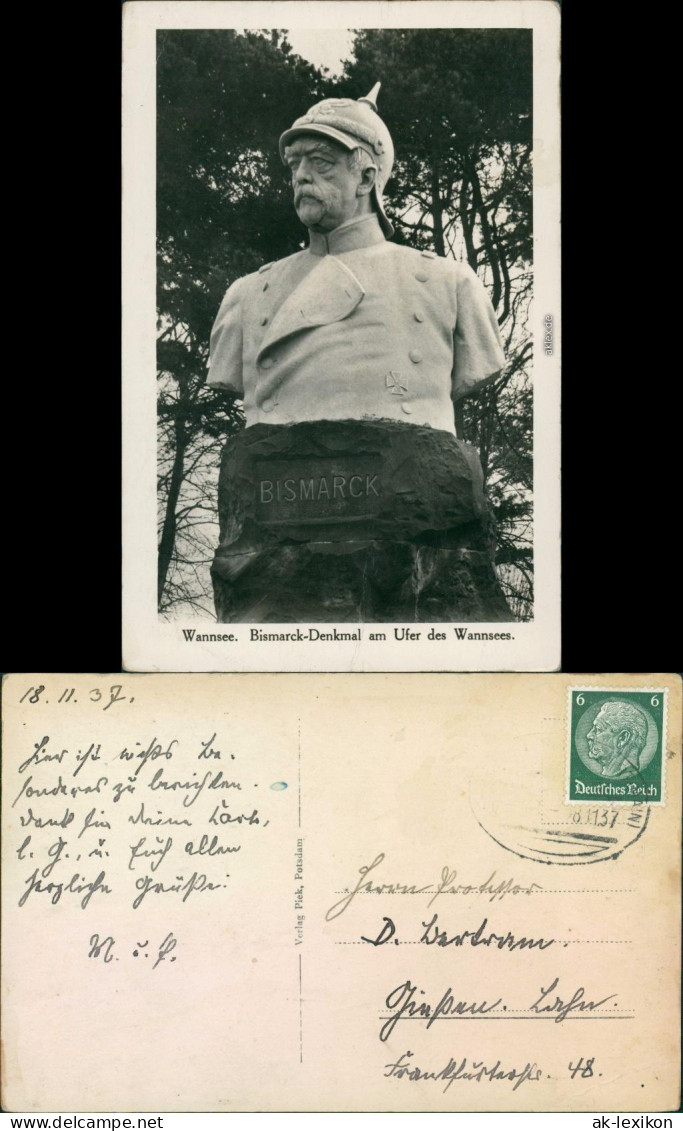 BISMARCK
aklex.de
Wannsee. Bismarck-Denkmal am Ufer des Wannsees.
18.11.37.
Hier ist nichts Be-
sonderes zu berichten.
Dank für Deine Karte,
l. G., u. Euch allen
herzliche Grüße:
M. u. P.
Verlag Piek, Potsdam
6 6
Deutsches Reich
8.11.37
Herrn Professor
D. Bertram.
Gießen. Lahn.
Frankfurterstr. 48.
www.delcampe.net
ak-lexikon